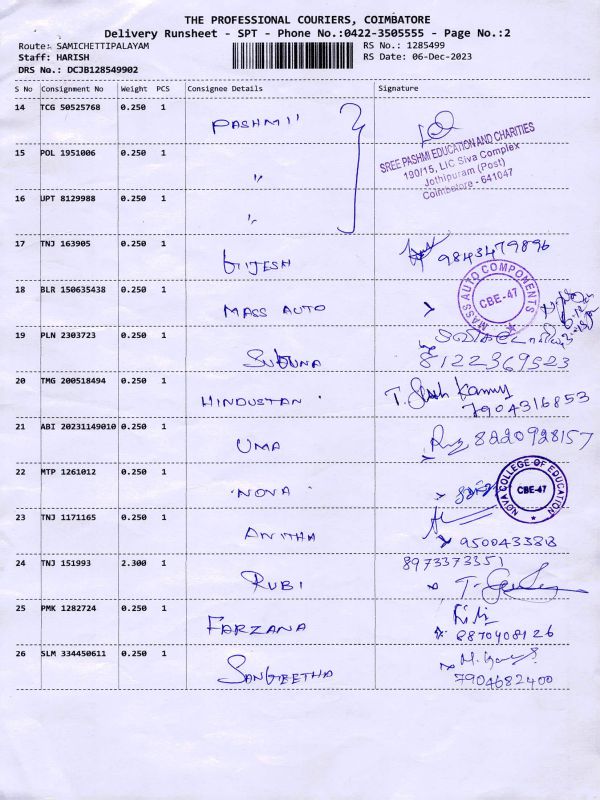 THE PROFESSIONAL COURIERS, COIMBATORE
Delivery Runsheet - SPT - Phone No.:0422-3505555 - Page No.:2
Route: SAMICHETTIPALAYAM RS No.: 1285499
Staff: HARISH RS Date: 06-Dec-2023
DRS No.: DCJB128549902
S No Consignment No Weight PCS Consignee Details Signature
14 TCG 50525768 0.250 1 PASHMII
SREE PASHMI EDUCATION AND CHARITIES
190/15, LIC Siva Complex
Jothipuram (Post)
Coimbatore - 641047
15 POL 1951006 0.250 1 "
16 UPT 8129988 0.250 1 "
17 TNJ 163905 0.250 1 GIJESH 9843479896
18 BLR 150635438 0.250 1 MASS AUTO
MASS AUTO COMPONENTS
CBE-47
19 PLN 2303723 0.250 1 SUGUNA
8122369523
20 TMG 200518494 0.250 1 HINDUSTAN
7904316853
21 ABI 20231149010 0.250 1 UMA 8220928157
22 MTP 1261012 0.250 1 "NOVA"
NOVA COLLEGE OF EDUCATION
CBE-47
23 TNJ 1171165 0.250 1 ANITHA
9500433813
24 TNJ 151993 2.300 1 RUBI 8973373351
25 PMK 1282724 0.250 1 FARZANA
8870408126
26 SLM 334450611 0.250 1 SANGEETHA
7904682400